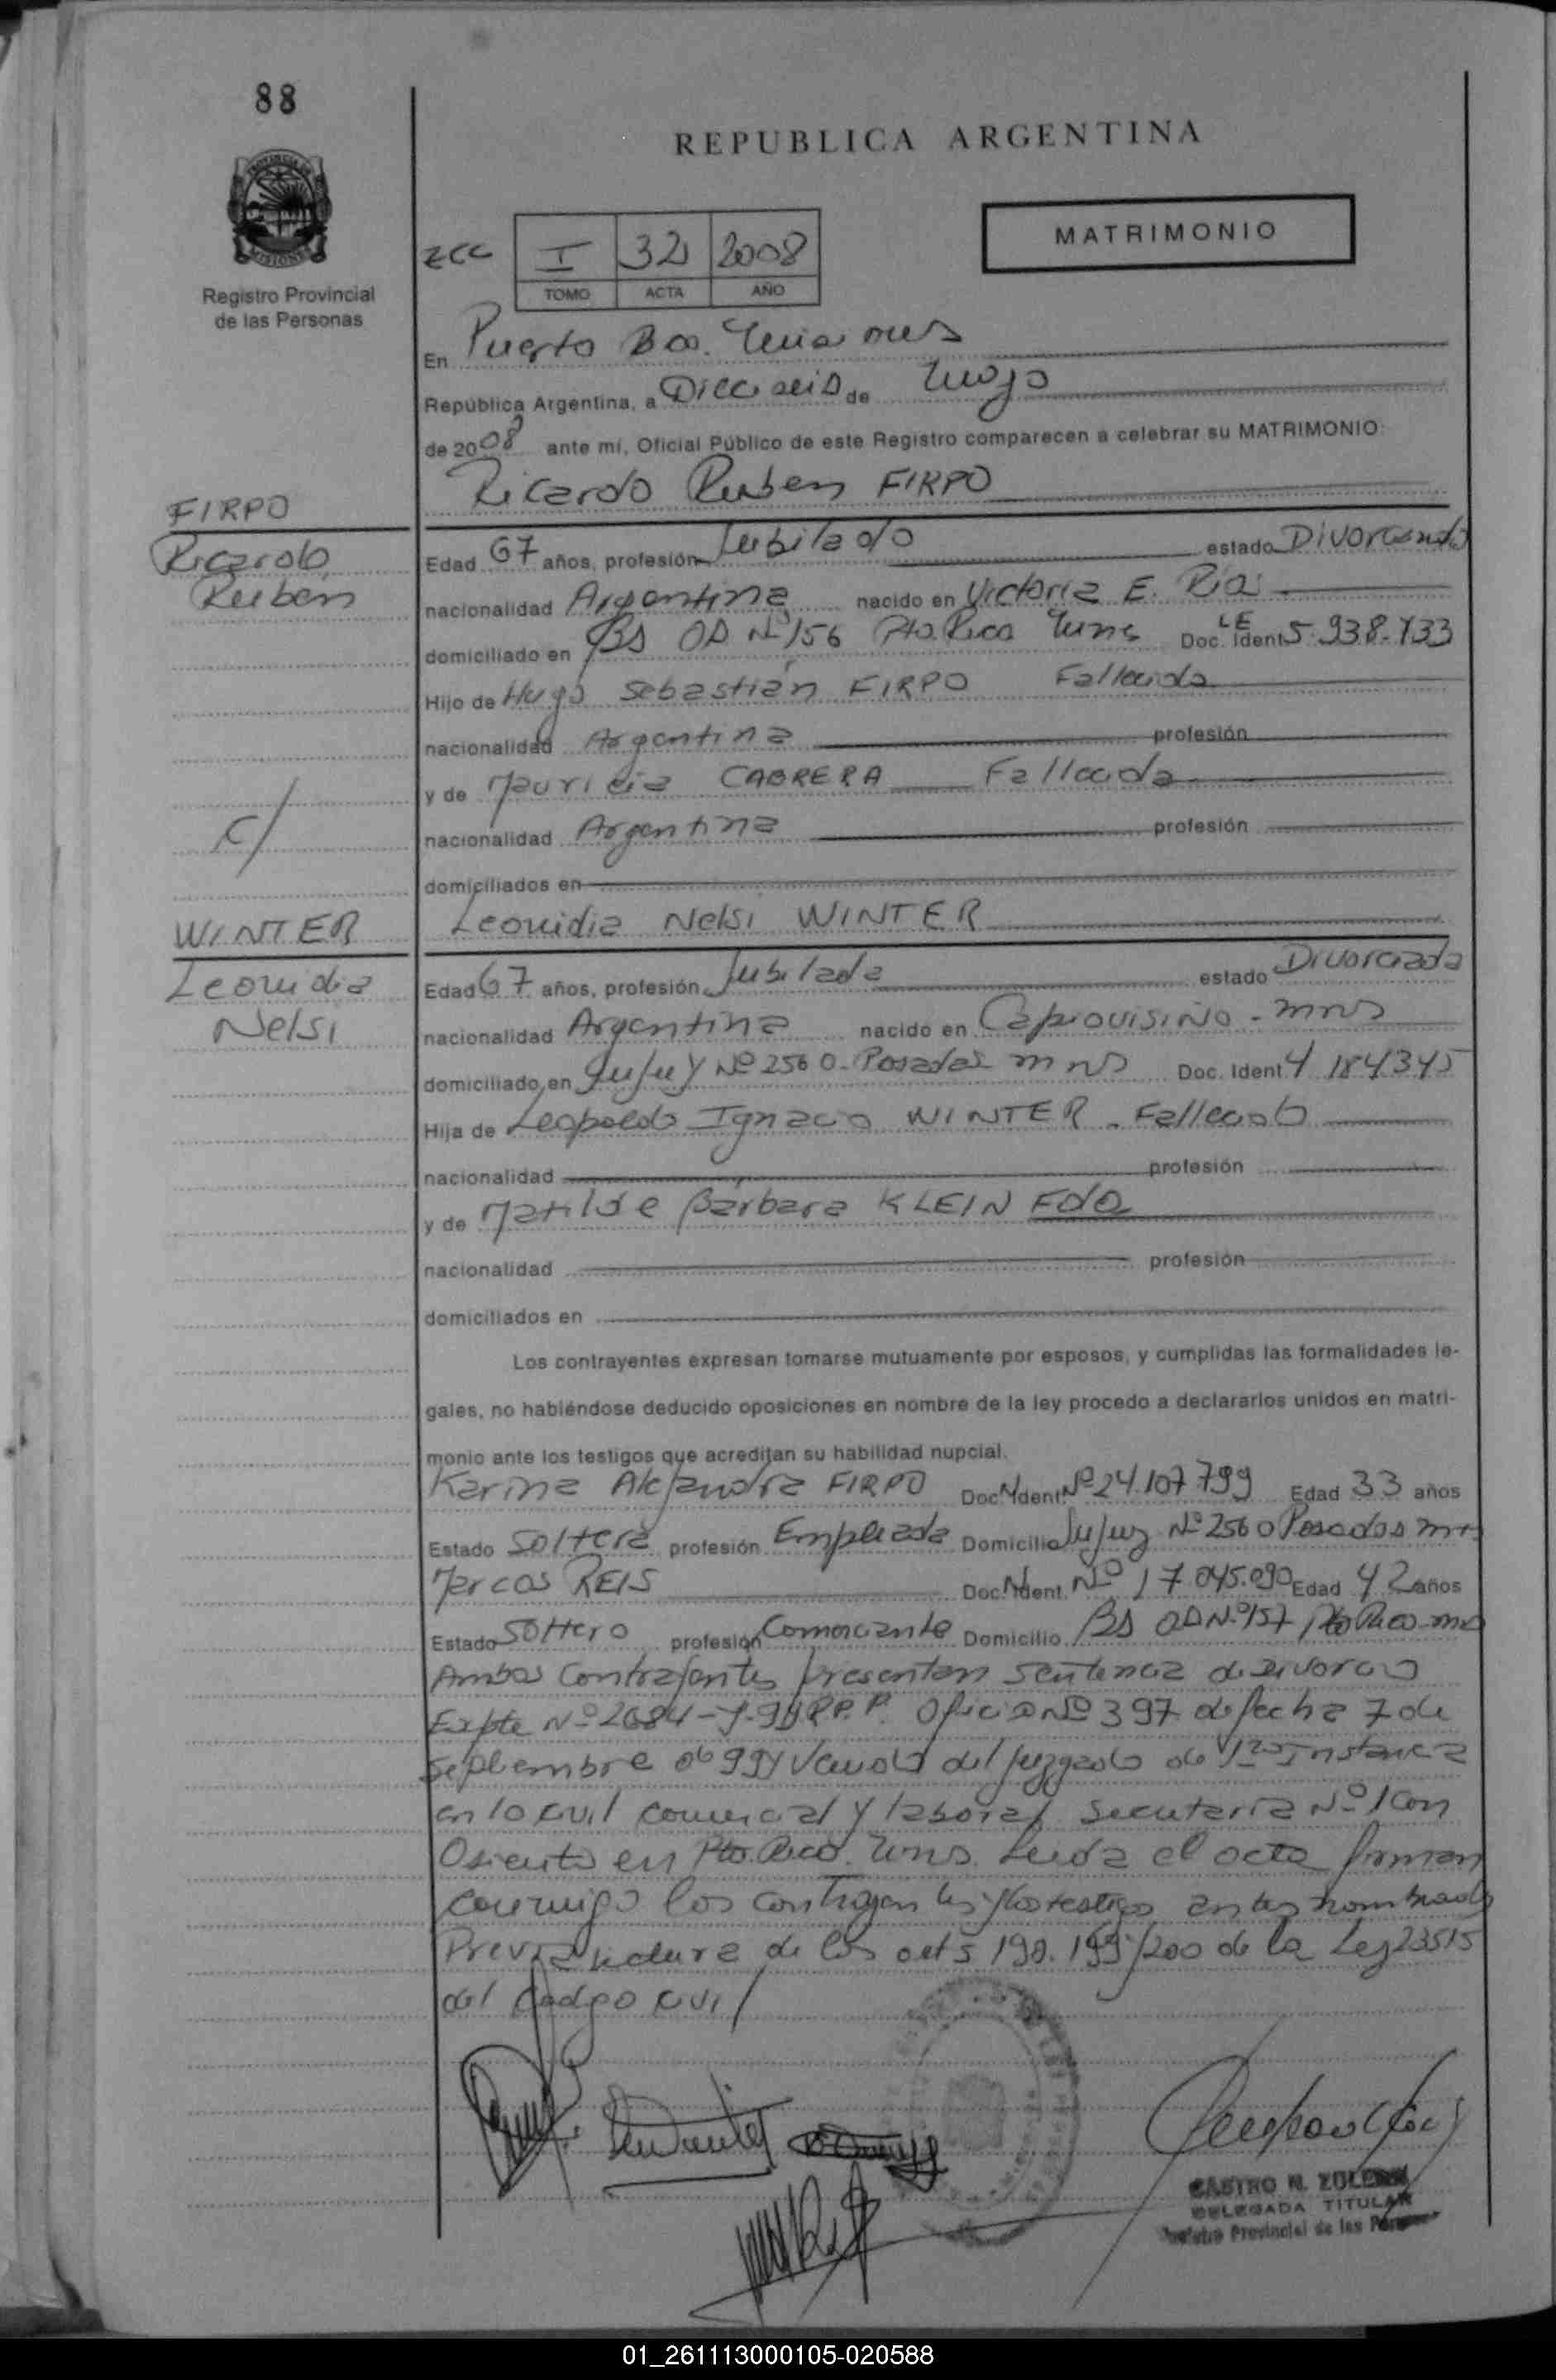 88
REPUBLICA ARGENTINA
MATRIMONIO
I 32 2008
TOMO ACTA AÑO
PROVINCIA DE
MISIONES
Registro Provincial
de las Personas
En Puerto Rico.
República Argentina, a Dieciseis de Mayo
de 2008 ante mí, Oficial Público de este Registro comparecen a celebrar su MATRIMONIO:
Ricardo Ruben FIRPO
FIRPO
Ricardo
Ruben
Edad 67 años, profesión Jubilado estado Divorciado
nacionalidad Argentina nacido en Victoria E.
domiciliado en Nº 156 Pto. Rico Doc. Ident LE 5.938.733
Hijo de Hugo Sebastián FIRPO Fallecido
nacionalidad Argentina profesión
y de Mauricia CABRERA Fallecida
nacionalidad Argentina profesión
c/
domiciliados en
WINTER
Leonidia Nelsi WINTER
Leonidia
Nelsi
Edad 67 años, profesión Jubilada estado Divorciada
nacionalidad Argentina nacido en Capiovisiño - mns
domiciliado en Jujuy Nº 2560 - Posadas mns Doc. Ident 4 184345
Hija de Leopoldo Ignacio WINTER - Fallecido
nacionalidad profesión
y de Matilde Bárbara KLEIN Fda
nacionalidad profesión
domiciliados en
Los contrayentes expresan tomarse mutuamente por esposos, y cumplidas las formalidades le-
gales, no habiéndose deducido oposiciones en nombre de la ley procedo a declararlos unidos en matri-
monio ante los testigos que acreditan su habilidad nupcial.
Karina Alejandra FIRPO Doc. Ident. Nº 24.107.799 Edad 33 años
Estado Soltera profesión Empleada Domicilio Jujuy Nº 2560 Posadas
Marcos REIS Doc. Ident. Nº 17.045.090 Edad 42 años
Estado Soltero profesión Comerciante Domicilio Nº 157 Pto Rico
Ambos Contrayentes presentan Sentencia de Divorcio
Expte Nº 2684 Oficio Nº 397 de fecha 7 de
Septiembre del Juzgado de 1ra Instancia
en lo Civil Comercial y laboral Secretaría Nº 1 con
Asiento en Pto. Rico. Mns. Leída el acta firman
conmigo los contrayentes y los testigos antes nombrados
Previa lectura de los arts 198.199/200 de la Ley 23515
del Codigo Civil
CASTRO M. ZULEMA
DELEGADA TITULAR
Registro Provincial de las Personas
01_261113000105-020588